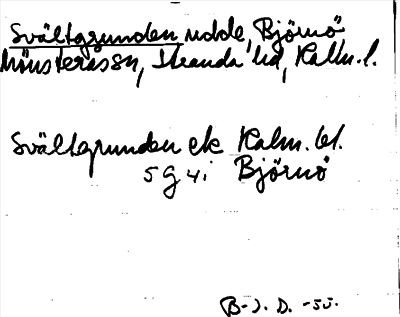 Svältgrunden udde, Björnö
Mönsterås sn, Stranda hd, Kalm. l.
Svältgrunden ek Kalm. bl.
5 g 4 i Björnö
B-J. D. -55.